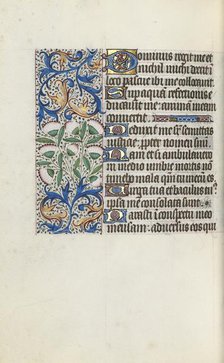 Dominus regit me et
nichil michi deerit i
loco pascue ibi me collocauit
Sup aquā refectionis e
ducauit me: animam meam
conuertit
Deduxit me sup semitas
iusticie: propter nomen suū.
Nam et si ambulauero
in medio umbre mortis nō
timebo mala: qm tu mecū es
Virga tua et baculus tuus
ipsa me consolata sunt
Parasti in conspectu meo
mensam: aduersus eos qui